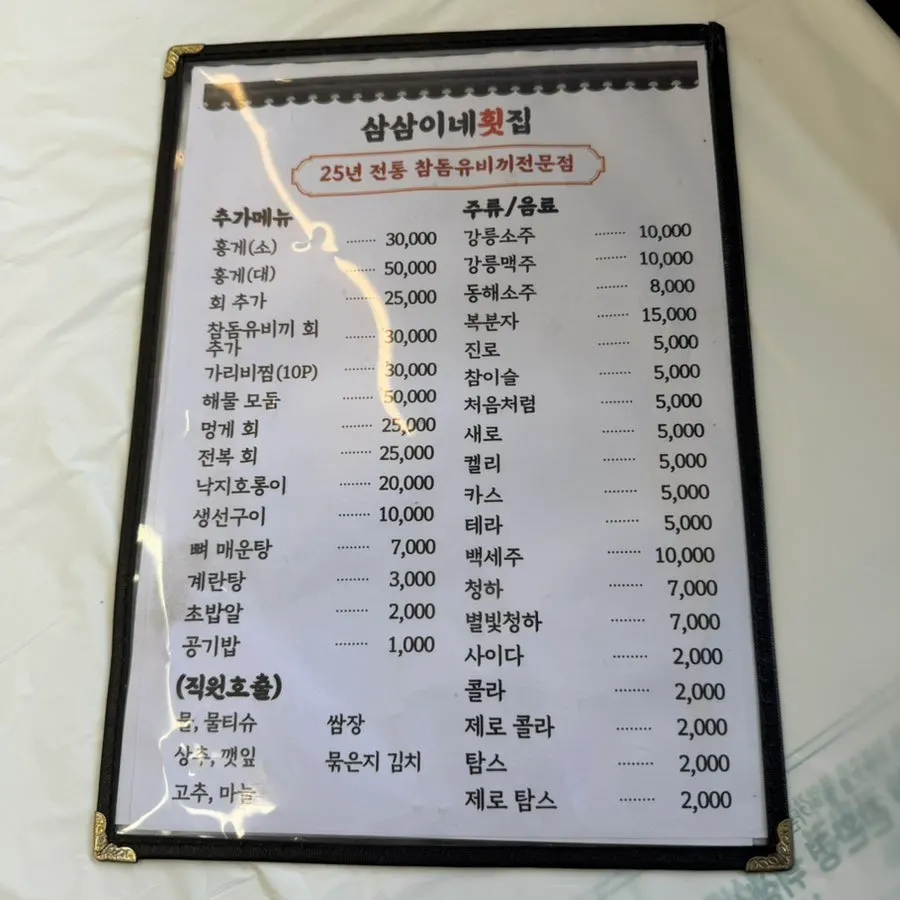 삼삼이네횟집
25년 전통 참돔유비끼전문점
추가메뉴
홍게(소) ········ 30,000
홍게(대) ········ 50,000
회 추가 ········ 25,000
참돔유비끼 회
추가 ········ 30,000
가리비찜(10P) ········ 30,000
해물 모둠 ········ 50,000
멍게 회 ········ 25,000
전복 회 ········ 25,000
낙지호롱이 ········ 20,000
생선구이 ········ 10,000
뼈 매운탕 ········ 7,000
계란탕 ········ 3,000
초밥알 ········ 2,000
공기밥 ········ 1,000
(직원호출)
물, 물티슈 쌈장
상추, 깻잎 묶은지 김치
고추, 마늘
주류/음료
강릉소주 ········ 10,000
강릉맥주 ········ 10,000
동해소주 ········ 8,000
복분자 ········ 15,000
진로 ········ 5,000
참이슬 ········ 5,000
처음처럼 ········ 5,000
새로 ········ 5,000
켈리 ········ 5,000
카스 ········ 5,000
테라 ········ 5,000
백세주 ········ 10,000
청하 ········ 7,000
별빛청하 ········ 7,000
사이다 ········ 2,000
콜라 ········ 2,000
제로 콜라 ········ 2,000
탐스 ········ 2,000
제로 탐스 ········ 2,000